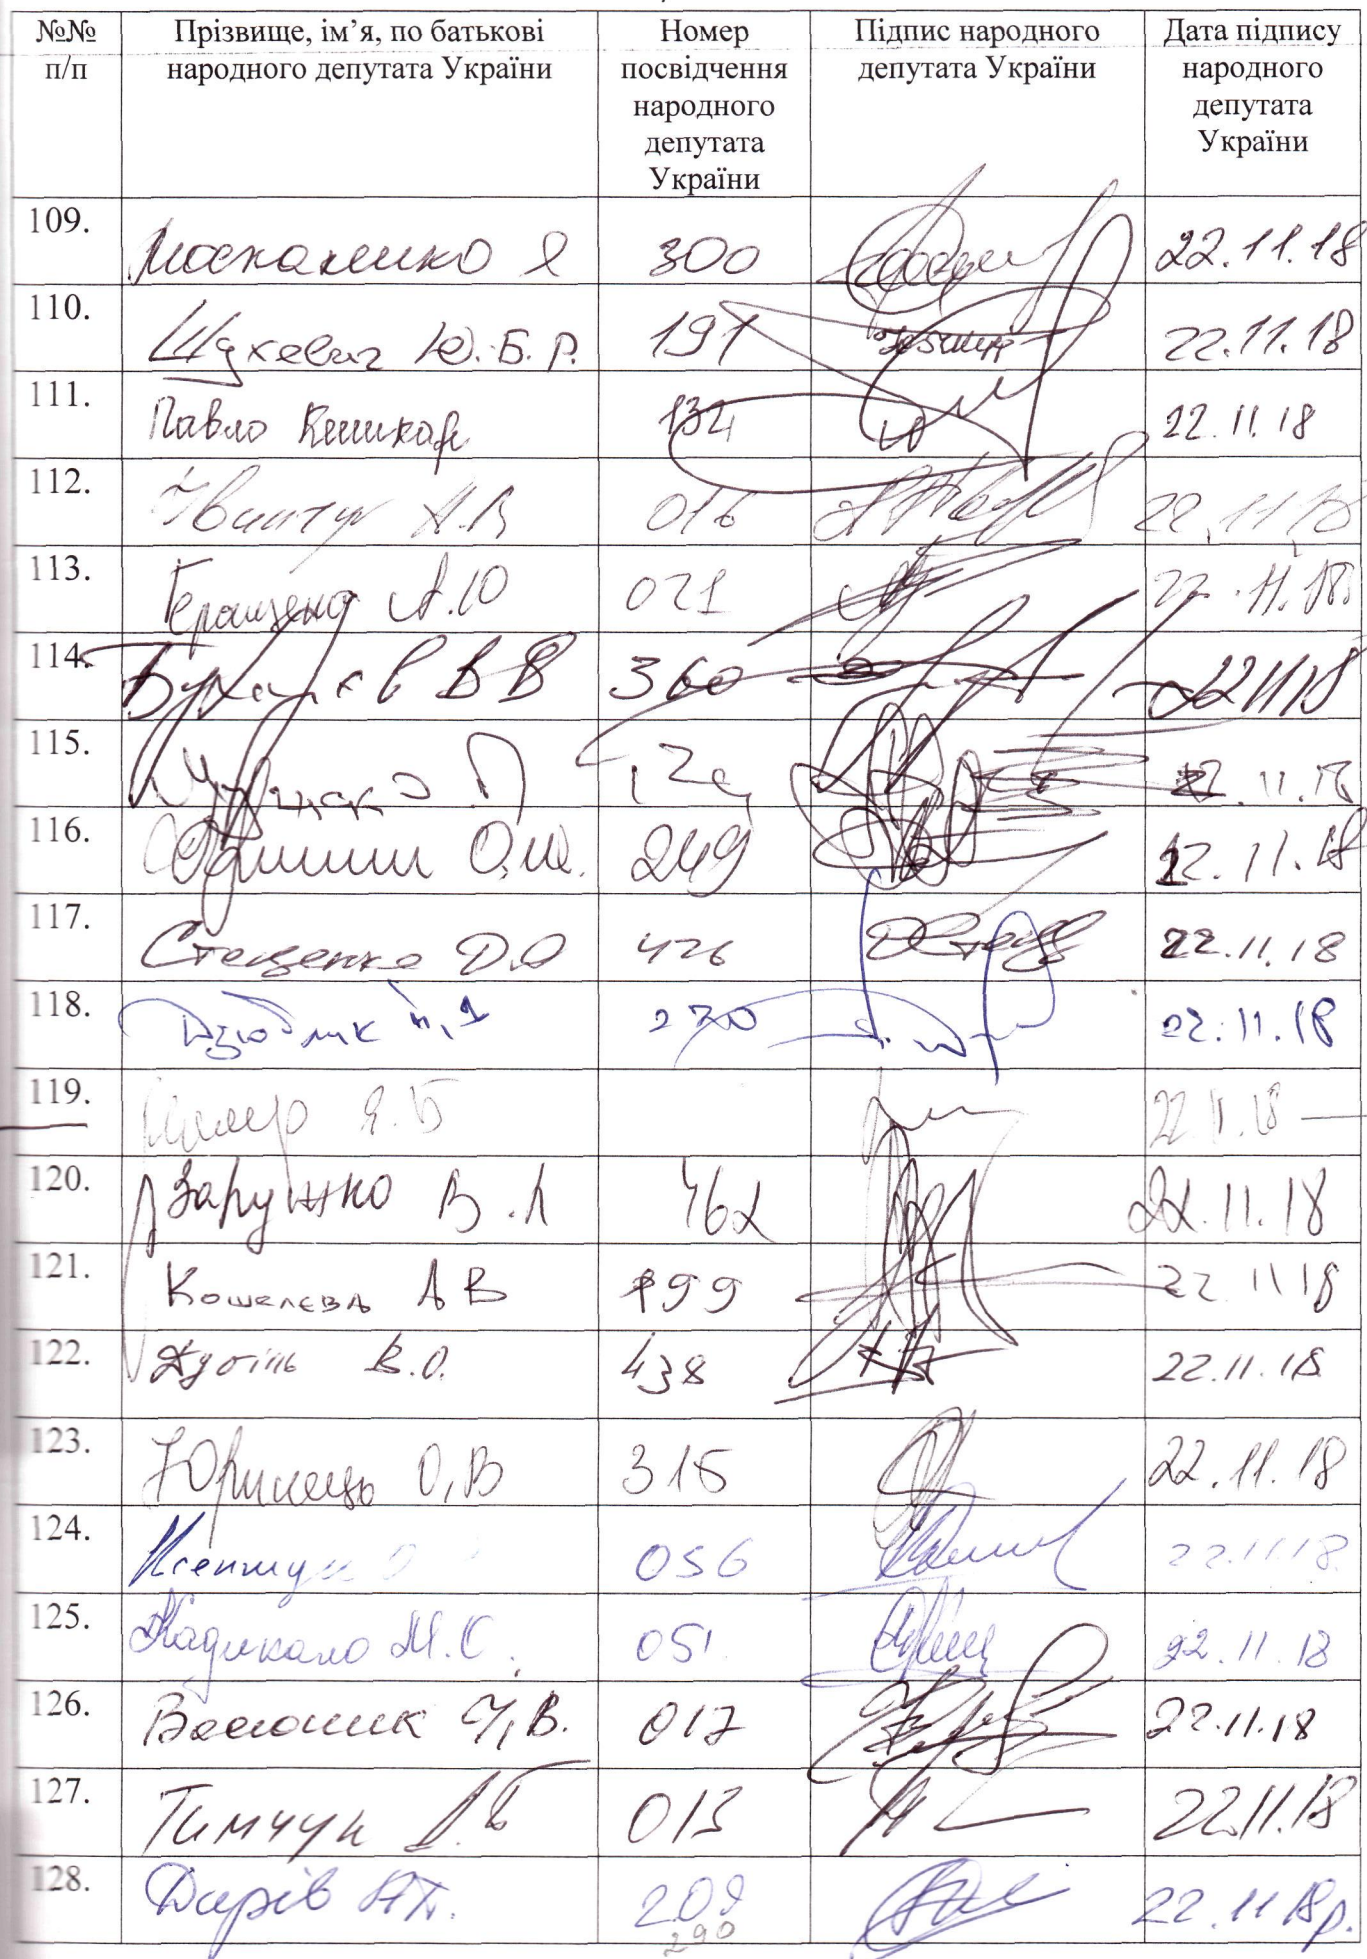 №№ п/п
Прізвище, ім’я, по батькові народного депутата України
Номер посвідчення народного депутата України
Підпис народного депутата України
Дата підпису народного депутата України
109. Москаленко Я 300 22.11.18
110. Шухевич Ю.-Б. Р. 191 22.11.18
111. Павло Кишкар 134 22.11.18
112. А.В 016 22.11.18
113. Геращенко А.Ю 021 22.11.18
114. В В 360 221118
115. 22.11.18
116. О.Ш. 249 22.11.18
117. Стеценко Д.О 426 22.11.18
118. Дзюблик 270 22.11.18
119. Я.Б 22.11.18
120. Заружко В.Л 462 22.11.18
121. Кошелєва А В 199 22 11 18
122. Дубіль В.О. 438 22.11.18
123. Юринець О,В 315 22.11.18
124. 056 22.11.18
125. Кадикало М.С. 051 22.11.18
126. Васюник І,В. 017 22.11.18
127. Тимчук Д.Б 013 22.11.18
128. 209 22.11 18р.
290